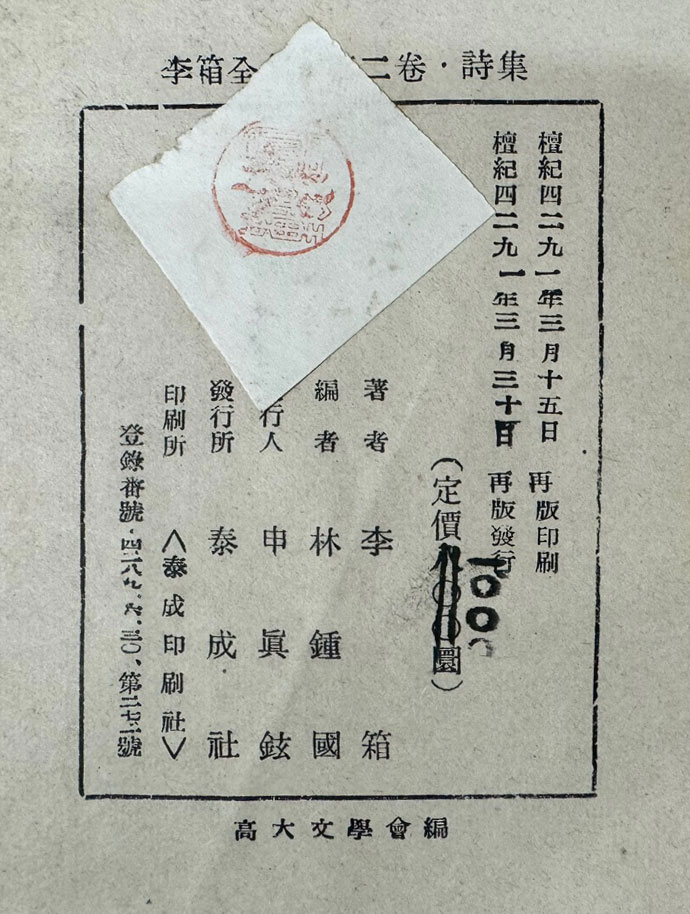 李箱全 二卷・詩集
檀紀四二九一年三月十五日 再版印刷
檀紀四二九一年三月三十日 再版發行
(定價 圜)
1000
著者 李箱
編者 林鍾國
行人 申眞鉉
發行所 泰成社
印刷所 〈泰成印刷社〉
登錄番號・四二八九、六、三〇、第二七二號
高大文學會編